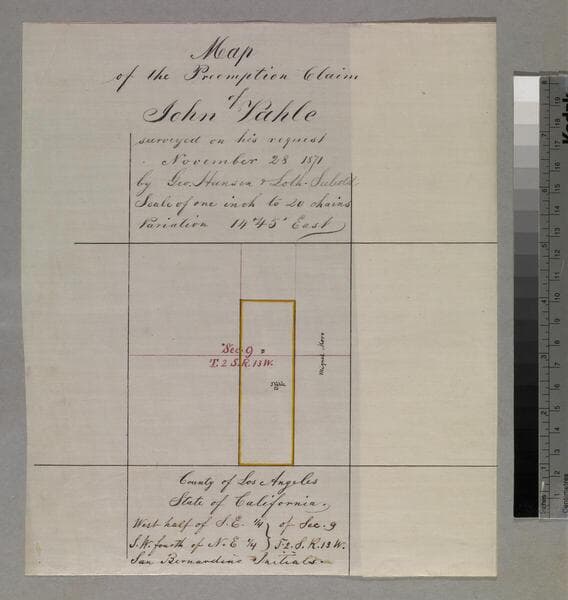 Map
of the Preemption Claim
of
John Vahle
surveyed on his request
November 28 1871
by Geo. Hansen & Loth. Seebold
Scale of one inch to 20 chains
Variation 14°45' East
Sec. 9
T. 2 S. R. 13 W.
County of Los Angeles
State of California.
West half of S. E. 1/4 } of Sec. 9
S. W. fourth of N. E 1/4 } T. 2. S. R. 13 W.
San Bernardino Initials.
Kodak
inches
Centimetres